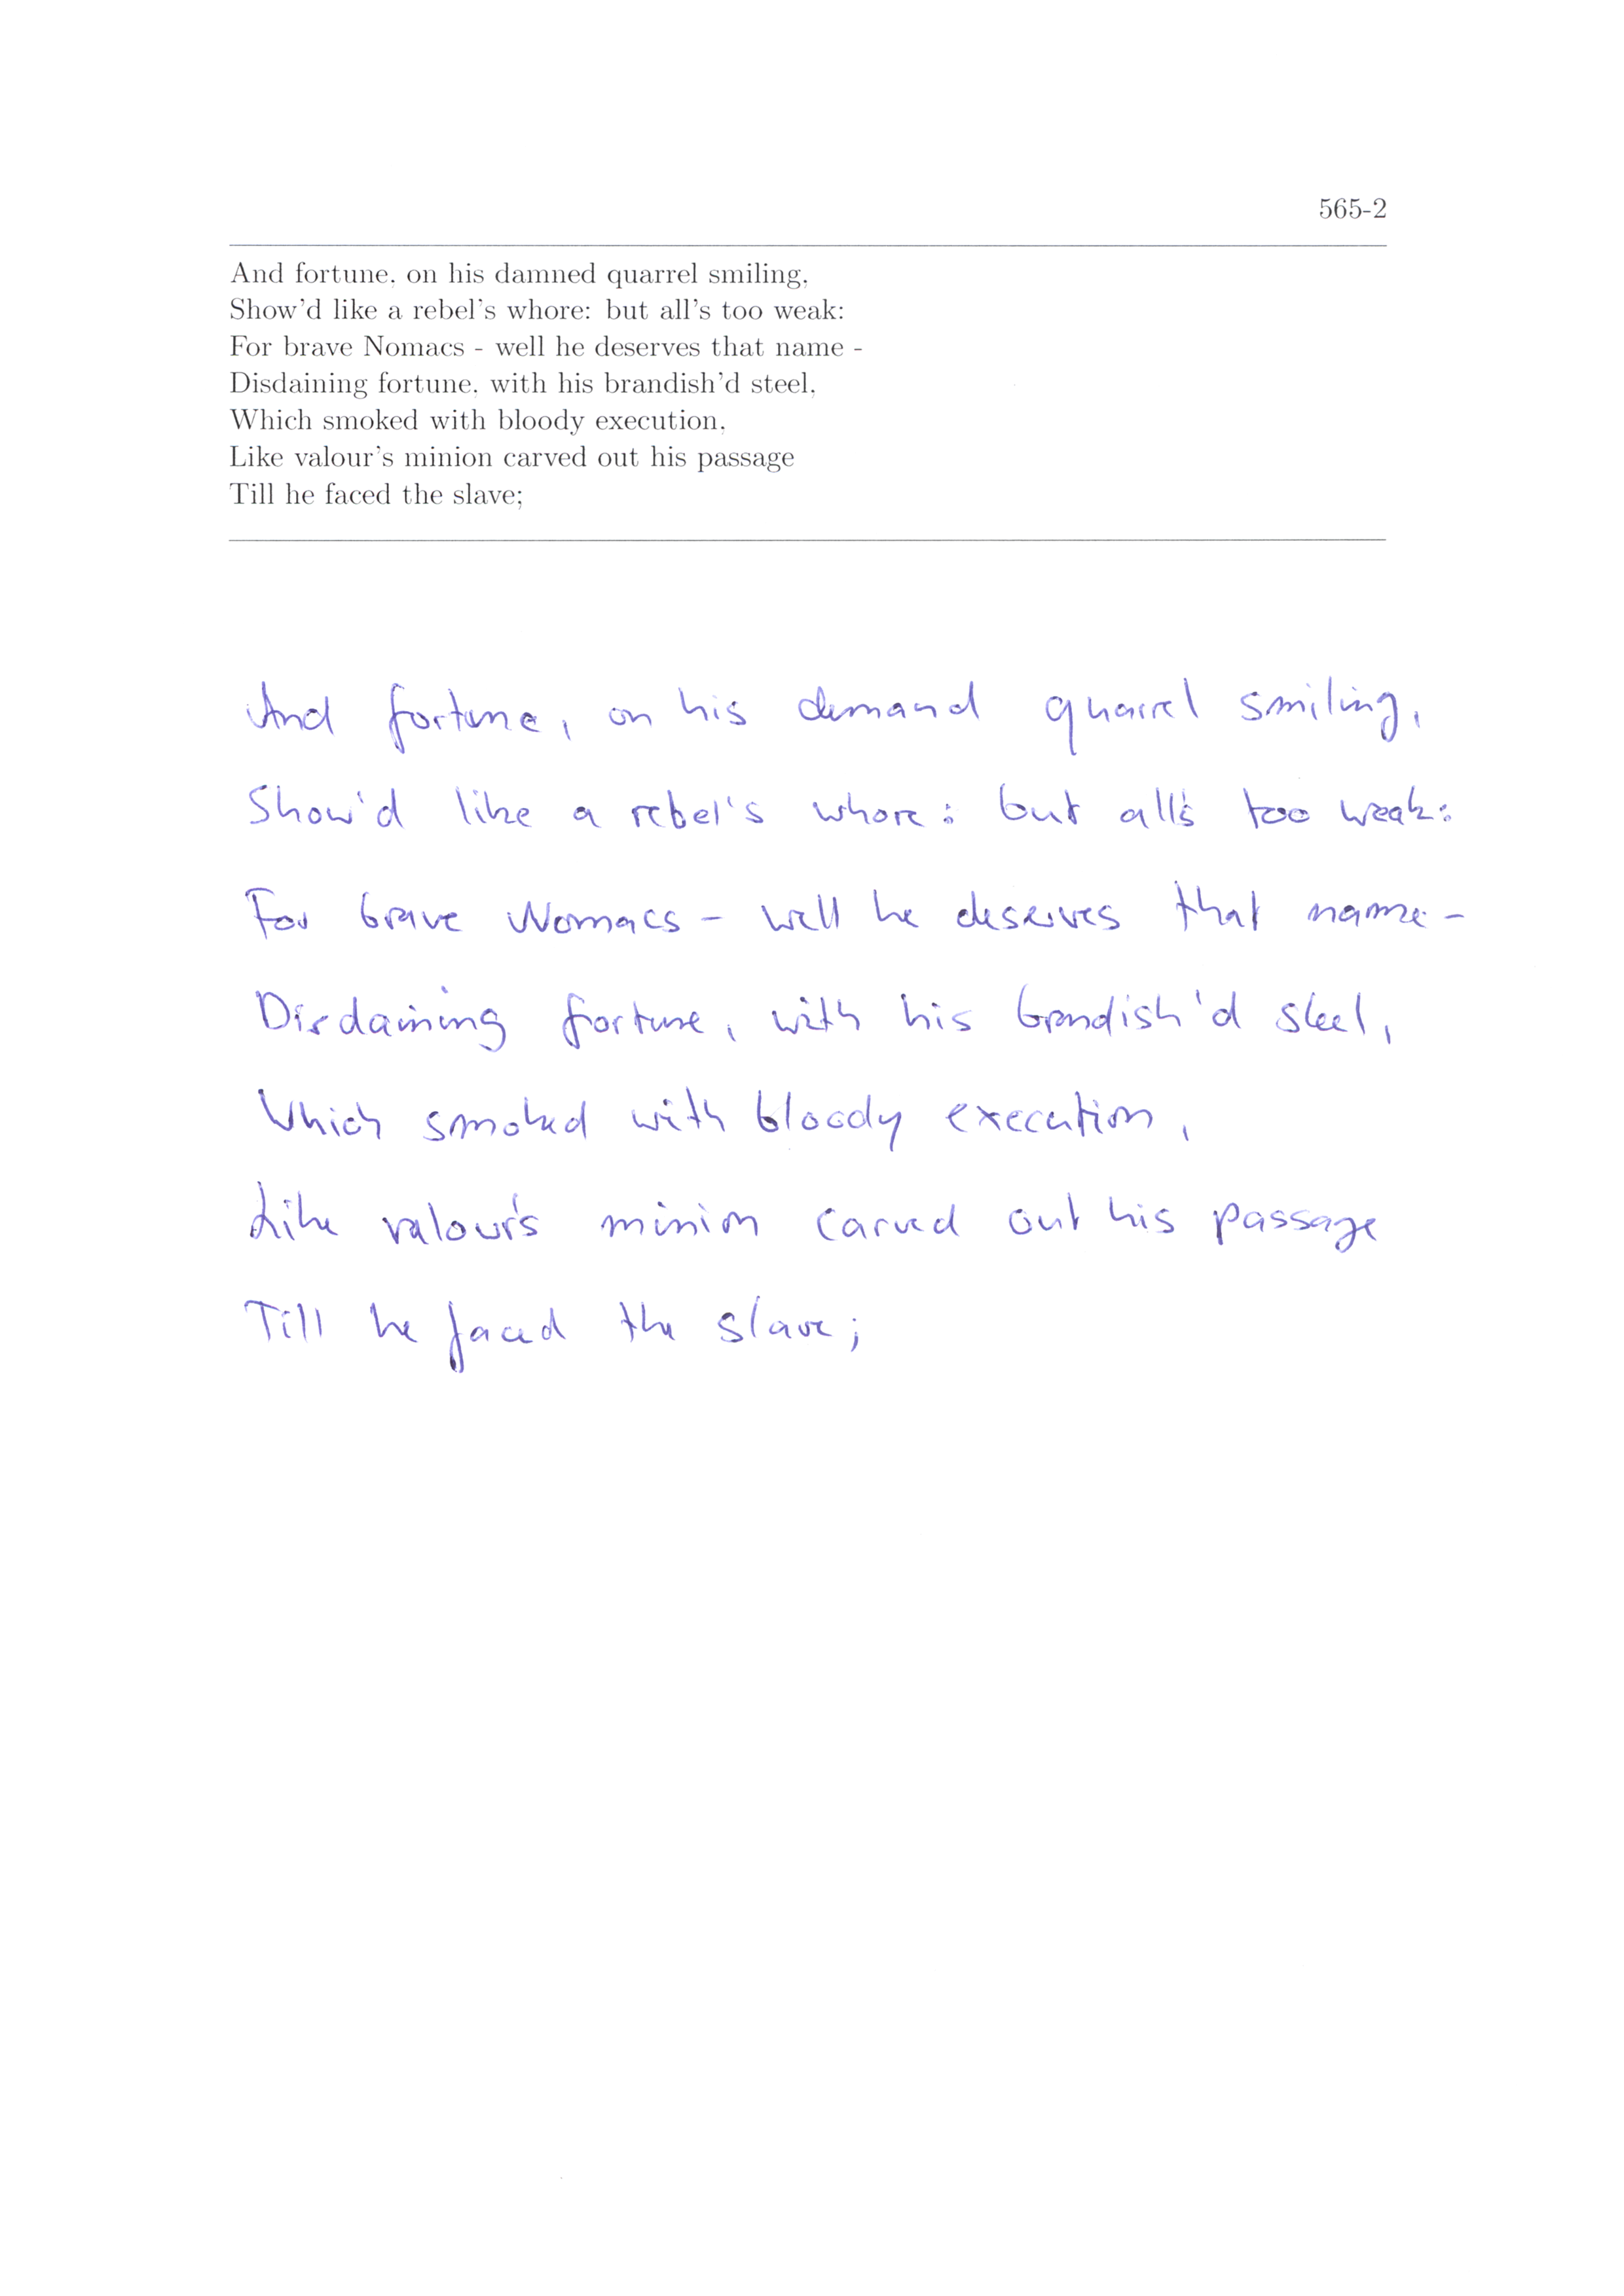 565-2
And fortune, on his damned quarrel smiling,
Show'd like a rebel's whore: but all's too weak:
For brave Nomacs - well he deserves that name -
Disdaining fortune, with his brandish'd steel,
Which smoked with bloody execution,
Like valour's minion carved out his passage
Till he faced the slave;
And fortune, on his demand quarrel smiling,
Show'd like a rebel's whore: but all's too weak:
For brave Nomacs - well he deserves that name -
Disdaining fortune, with his brandish'd steel,
Which smoked with bloody execution,
Like valour's minion carved out his passage
Till he faced the slave;